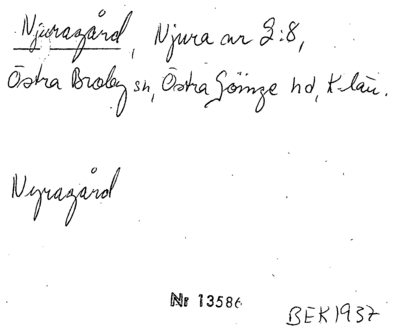 Njuragård, Njura av 2:8,
Östra Broby sn, Östra Göinge hd, K-län.
Nyragård
Nr 13586
BEK1937